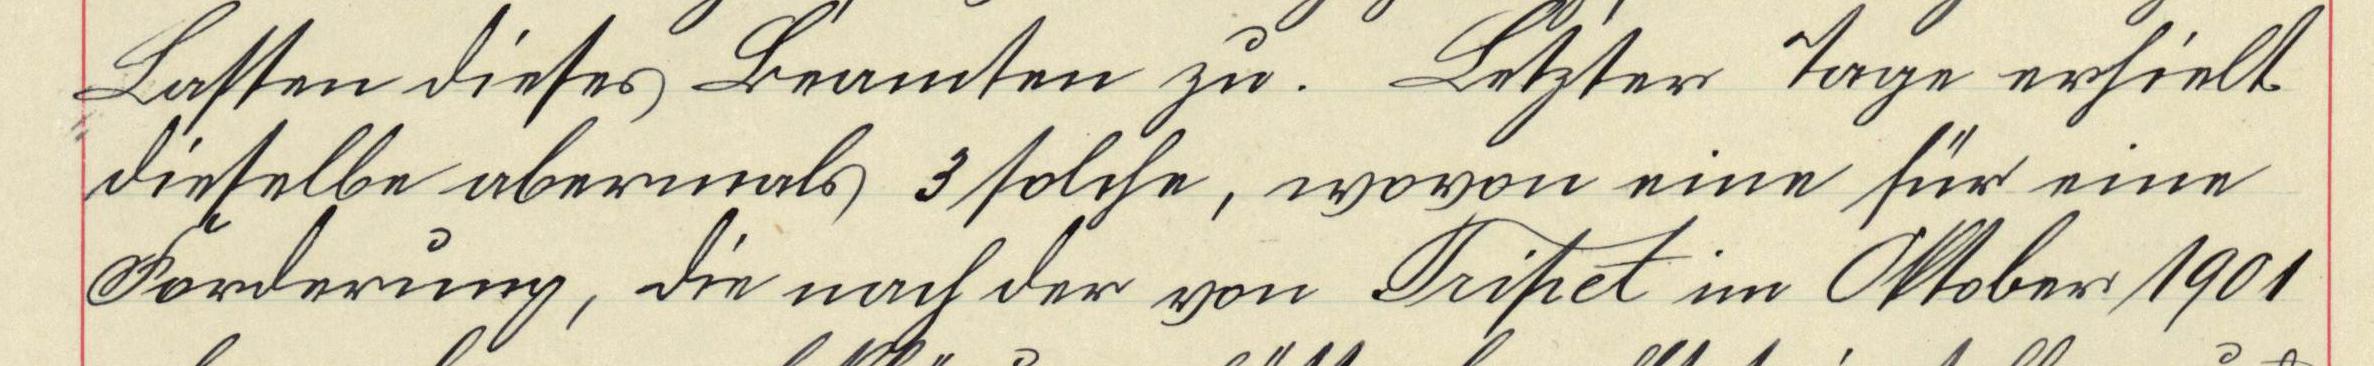 Lasten dieses Beamten zu. Letzter Tage erhielt
dieselbe abermals 3 solche, wovon eine für eine
Forderung, die nach der von Tripet im Oktober 1901